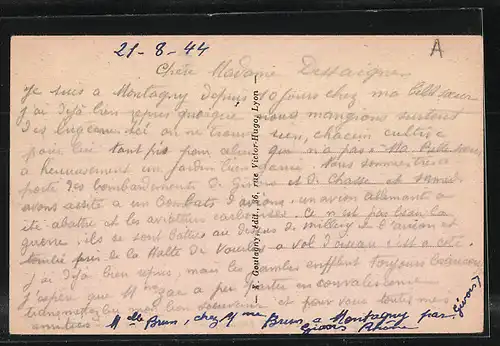 21-8-44
A
Chère Madame Dessaigne
Je suis à Montagny depuis 10 jours chez ma belle sœur
j'ai déjà bien repris quoique nous mangions surtout
des légumes. Ici on ne trouve rien, chacun cultive
pour lui tant pis pour celui qui n'a pas. Ma Belle sœur
a heureusement un jardin bien garni. Nous sommes très à
portée des bombardements de Givors et de Chasse et samedi
avons assisté à un combat d'avions, un avion allemand a
été abattu et les aviateurs carbonisés. Ce n'est pas beau la
guerre. ils se sont battus au dessus de Millery et l'avion est
tombé près de la Halte de Vourles à vol d'oiseau c'est à côté.
J'ai déjà bien repris, mais les jambes enflent toujours
J'espère que M a pu partir en convalescence
transmettez lui mon bon souvenir et pour vous toutes mes
amitiés. Mlle Brun, chez Mme Brun à Montagny par Givors
Givors Rhône
A. Goutagny, édit., 36, rue Victor-Hugo, Lyon